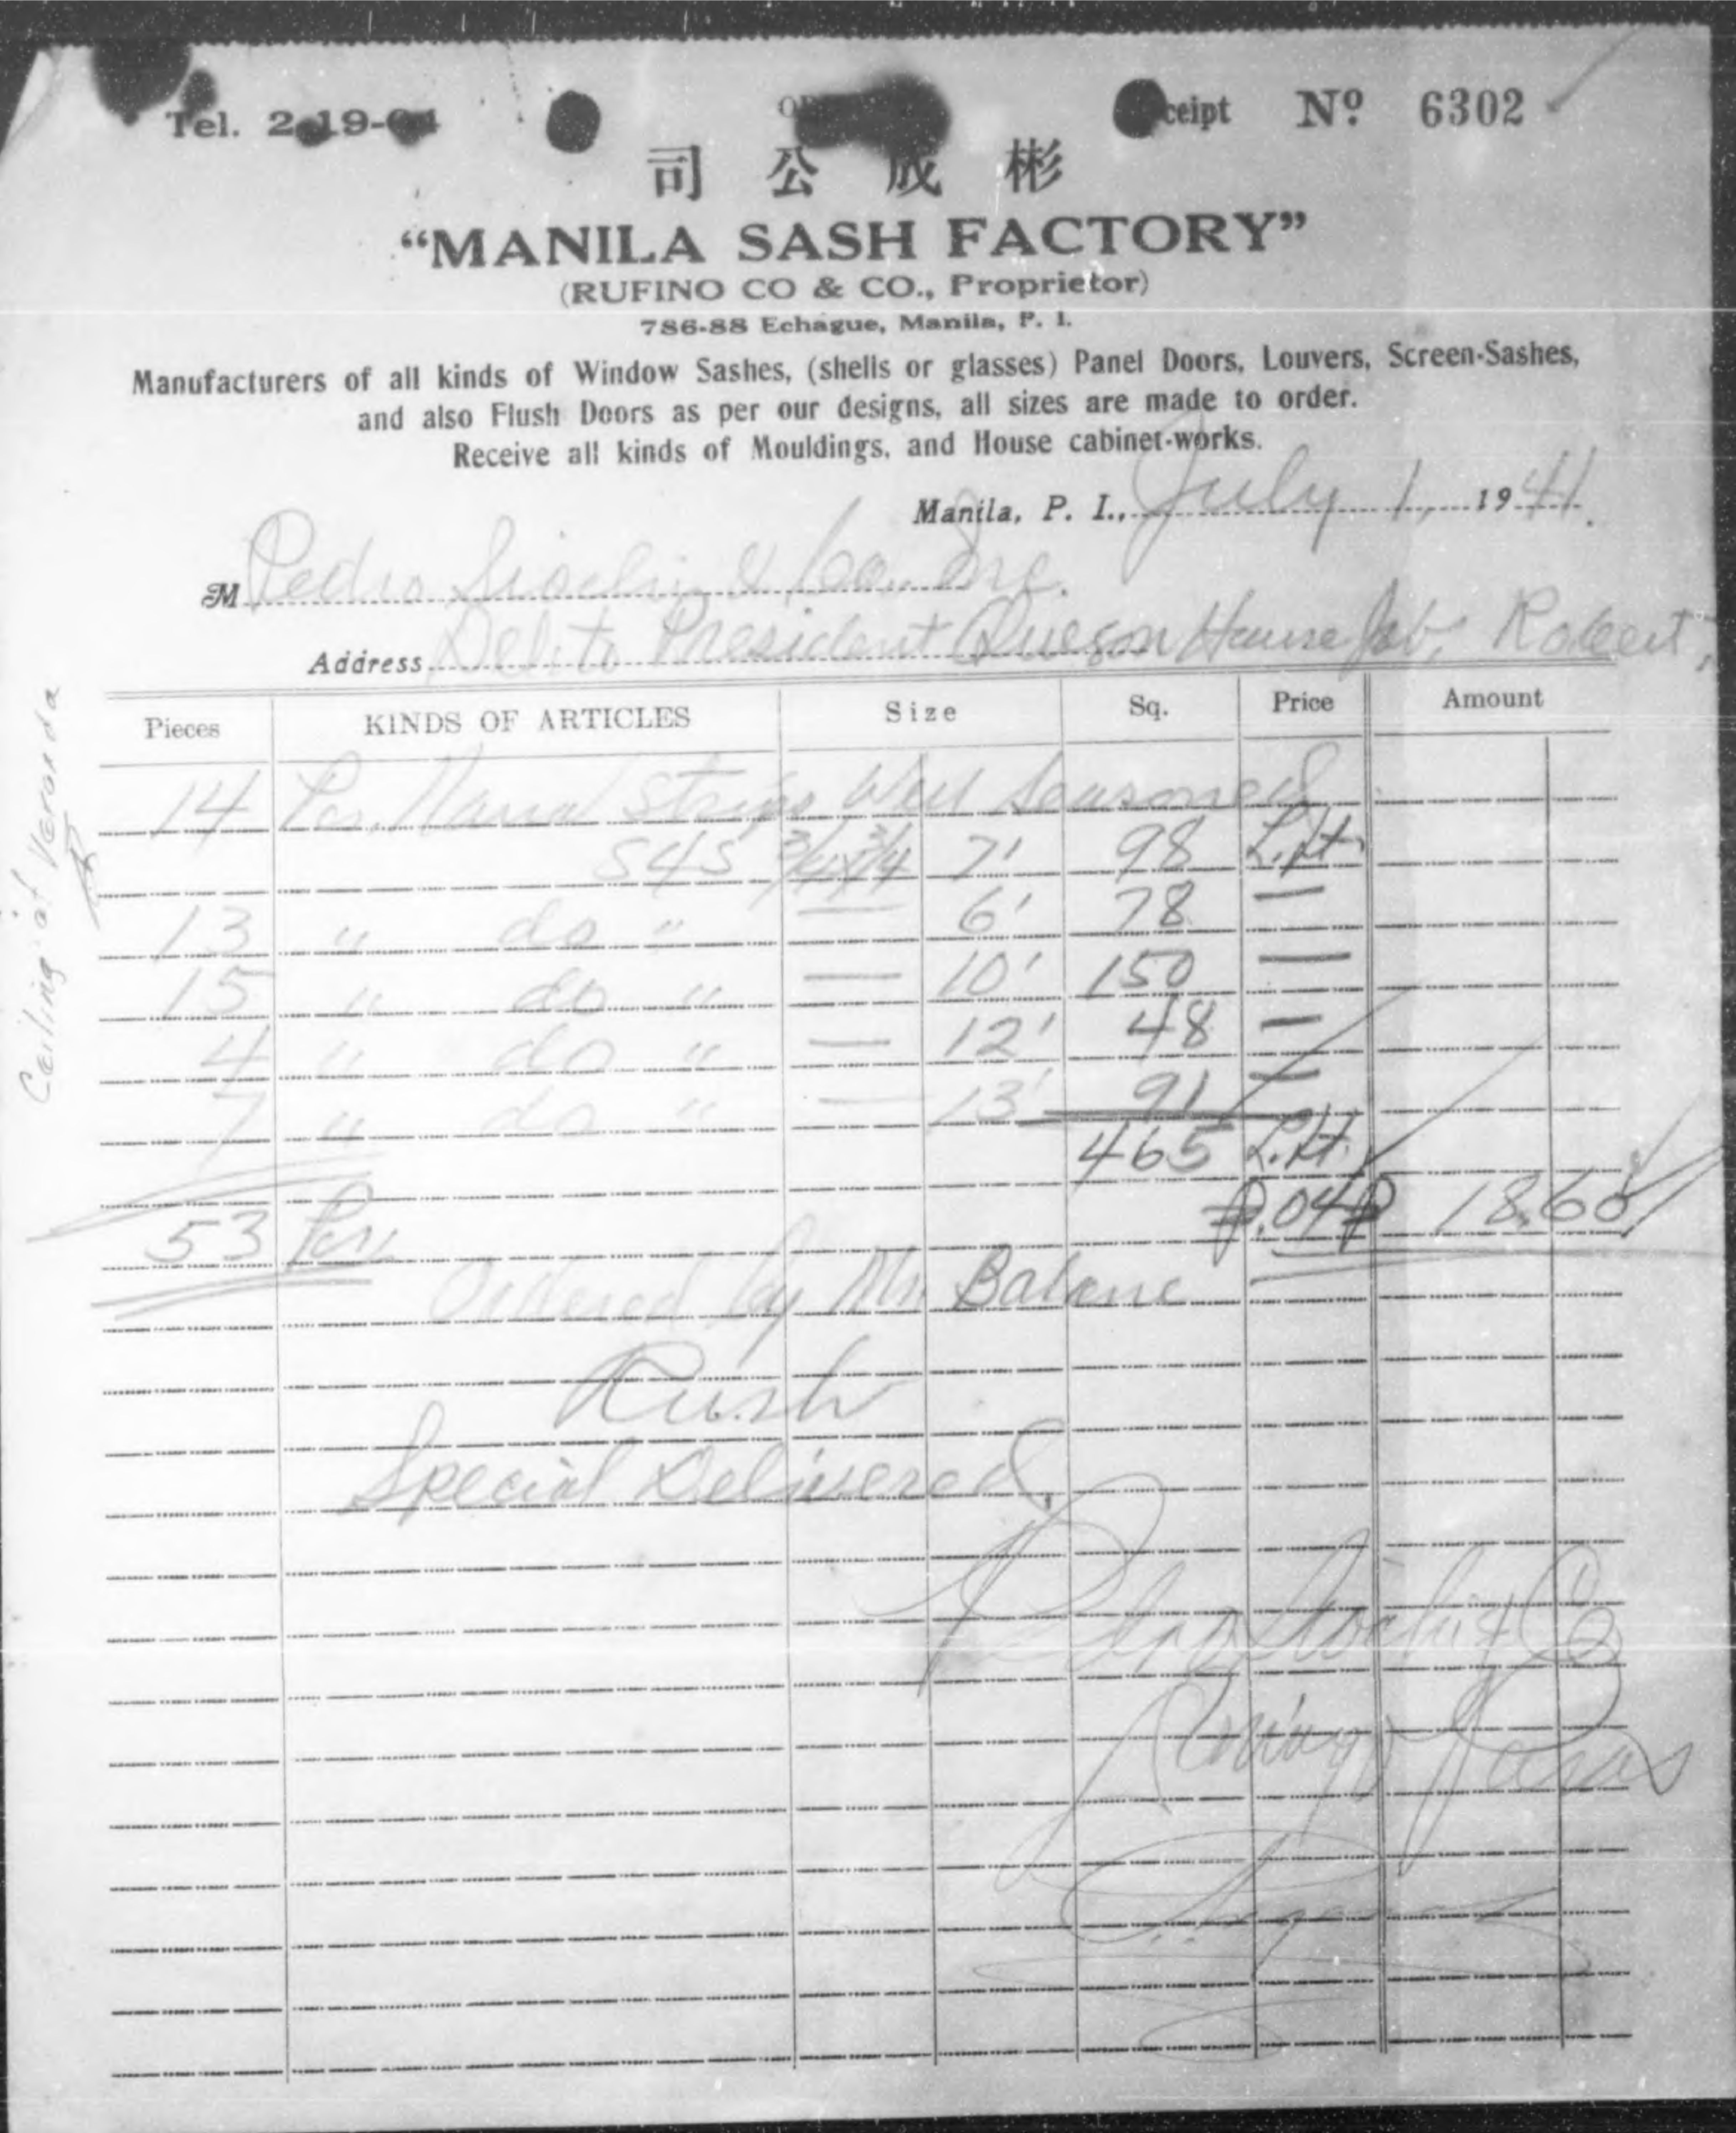 Tel. 2-19-
ceipt Nº 6302
司公成彬
“MANILA SASH FACTORY”
(RUFINO CO & CO., Proprietor)
786-88 Echague, Manila, P. I.
Manufacturers of all kinds of Window Sashes, (shells or glasses) Panel Doors, Louvers, Screen-Sashes,
and also Flush Doors as per our designs, all sizes are made to order.
Receive all kinds of Mouldings, and House cabinet-works.
Manila, P. I., July 1, 1941.
M Pedro Siochi & Co. Inc.
Address Del. to President Quezon House Job, Robert,
Pieces KINDS OF ARTICLES Size Sq. Price Amount
14 Pcs. Strips Well Seasoned
S4S 3/4x3/4 7' 98 L.ft.
13 " do " — 6' 78 —
15 " do " — 10' 150 —
4 " do " — 12' 48 —
7 " do " — 13' 91 —
465 L.ft.
₱.04 ₱ 18.60
53 Pcs.
Ordered by Mr. Balane
Rush
Special Delivered.
Ceiling of Veranda